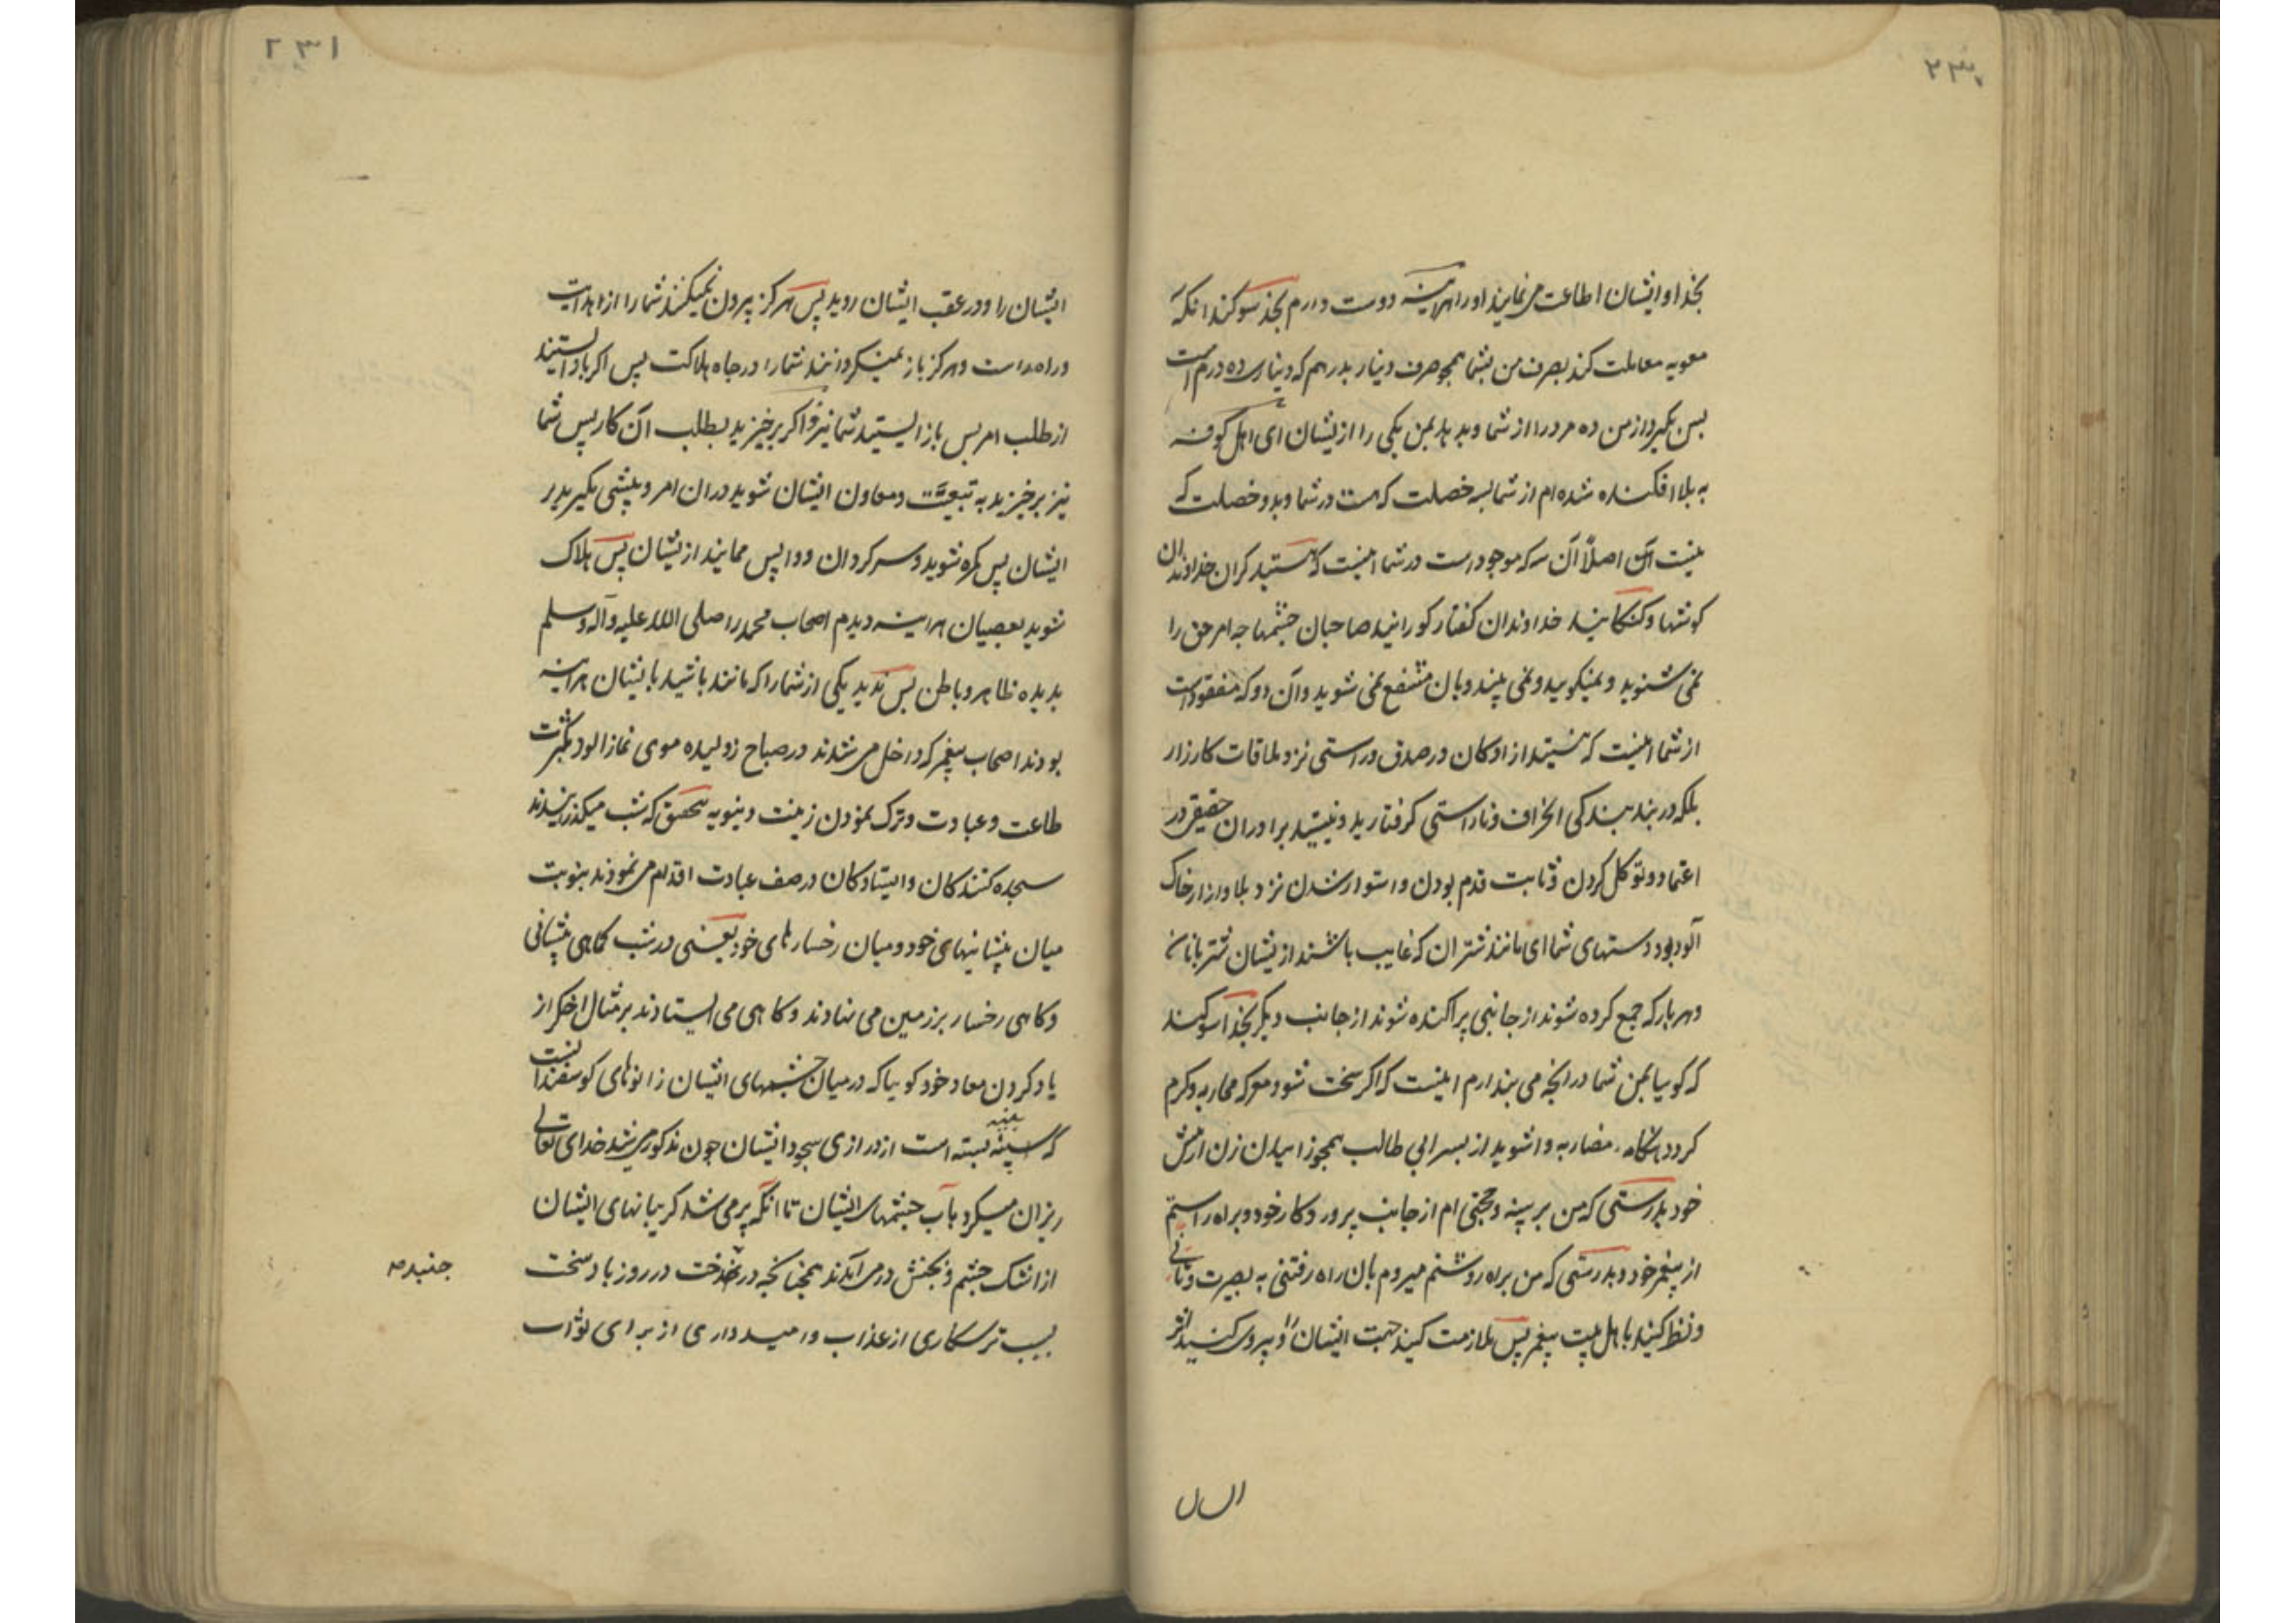 ۲۳۰
بخدا و ایشان اطاعت می نمایند او را هراینه دوست دارم بخدا سوکند انکه
معویه معاملت کند بصرف من بشما همچو صرف دینار بدرهم که دیناری ده درم است
پس بکیرد از من ده مرد را از شما و بدهد بمن یکی را ازیشان ای اهل کوفه
به بلا افکنده شده ام از شما بسه خصلت که هست در شما و بدو خصلت که
نیست آن اصلاً آن سه که موجود است در شما اینست که هستید کران خداوندان
کوشها و کنکانید خداوندان کفتار کورانید صاحبان چشمها چه امر حق را
نمی شنوید و نمیکویید و نمی بینید و بان منتفع نمی شوید و آن دو که مفقود است
از شما اینست که نیستید ازادکان در صدق و راستی نزد ملاقات کارزار
بلکه در بند بندکی انحراف و ناراستی کرفتارید و نیستید برادران حقیقی در
اعتماد و توکل کردن و ثابت قدم بودن و استوار شدن نزد بلا و ازار خاک
آلود بود دستهای شما ای مانند شتران که غایب باشند ازیشان شتربانان
و هر بار که جمع کرده شوند از جانبی پراکنده شوند از جانب دیکر بخدا سوکند
که کویا بمن شما در انچه می پندارم اینست که اکر سخت شود معرکه محاربه و کرم
کردد هنکامه مضاربه وا شوید از پسر ابی طالب همچو زاییدن زن از پیش
خود بدرستی که من بر بینه و حجتی ام از جانب پروردکار خود و براه راستم
از پیغمبر خود و بدرستی که من براه روشنم میروم بان راه رفتنی به بصیرت و تانی
و نظر کنید باهل بیت پیغمبر پس ملازمت کنید جهت ایشان را و پیروی کنید اثر
۲۳۱
ایشان را و در عقب ایشان روید پس هرکز بیرون نمیکنند شما را از هدایت
و راه راست و هرکز باز نمیکردانند شما را در چاه هلاکت پس اکر باز ایستند
از طلب امر پس باز ایستید شما نیز و اکر برخیزید بطلب آن کار پس شما
نیز برخیزید به تبعیت و معاون ایشان شوید در ان امر و پیشی مکیرید بر
ایشان پس کمره شوید و سرکردان و واپس ممانید ازیشان پس هلاک
شوید بعصیان هراینه دیدم اصحاب محمد را صلی الله علیه و آله و سلم
بدیده ظاهر و باطن پس ندید یکی از شما را که مانند باشید بایشان هراینه
بودند اصحاب پیغمبر که داخل می شدند در صباح ژولیده موی غبار الود بکثرت
طاعت و عبادت و ترک نمودن زینت دینویه بتحقیق که شب میکذرانیدند
سجده کنندکان و ایستادکان در صف عبادت اقدام می نمودند بنوبت
میان پیشانیهای خود و میان رخسارهای خود یعنی در شب کاهی پیشانی
و کاهی رخسار بر زمین می نهادند و کاهی می ایستادند بر مثال اخکر از
یاد کردن معاد خود کویا که در میان چشمهای ایشان زانوهای کوسفندانست
که پینه بسته است از درازی سجود ایشان چون مذکور می شد خدای تعالی
ریزان میکرد بآب چشمهای ایشان تا انکه پر می شد کریبانهای ایشان
از اشک چشم و بجنبش در می آمدند همچنانکه درخت در روز باد سخت
بسبب ترسکاری از عذاب و امیدواری از برای ثواب